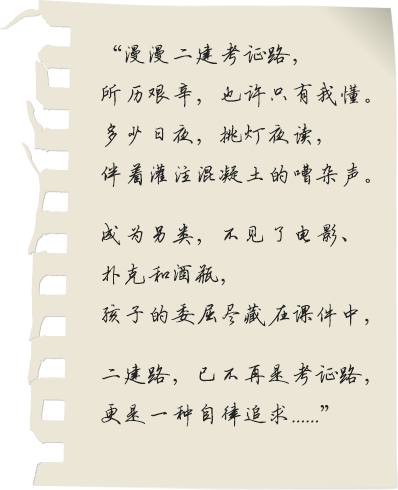 “漫漫二建考证路，
所历艰辛，也许只有我懂。
多少日夜，挑灯夜读，
伴着灌注混凝土的嘈杂声。
成为另类，不见了电影、
扑克和酒瓶，
孩子的委屈尽藏在课件中，
二建路，已不再是考证路，
更是一种自律追求......”